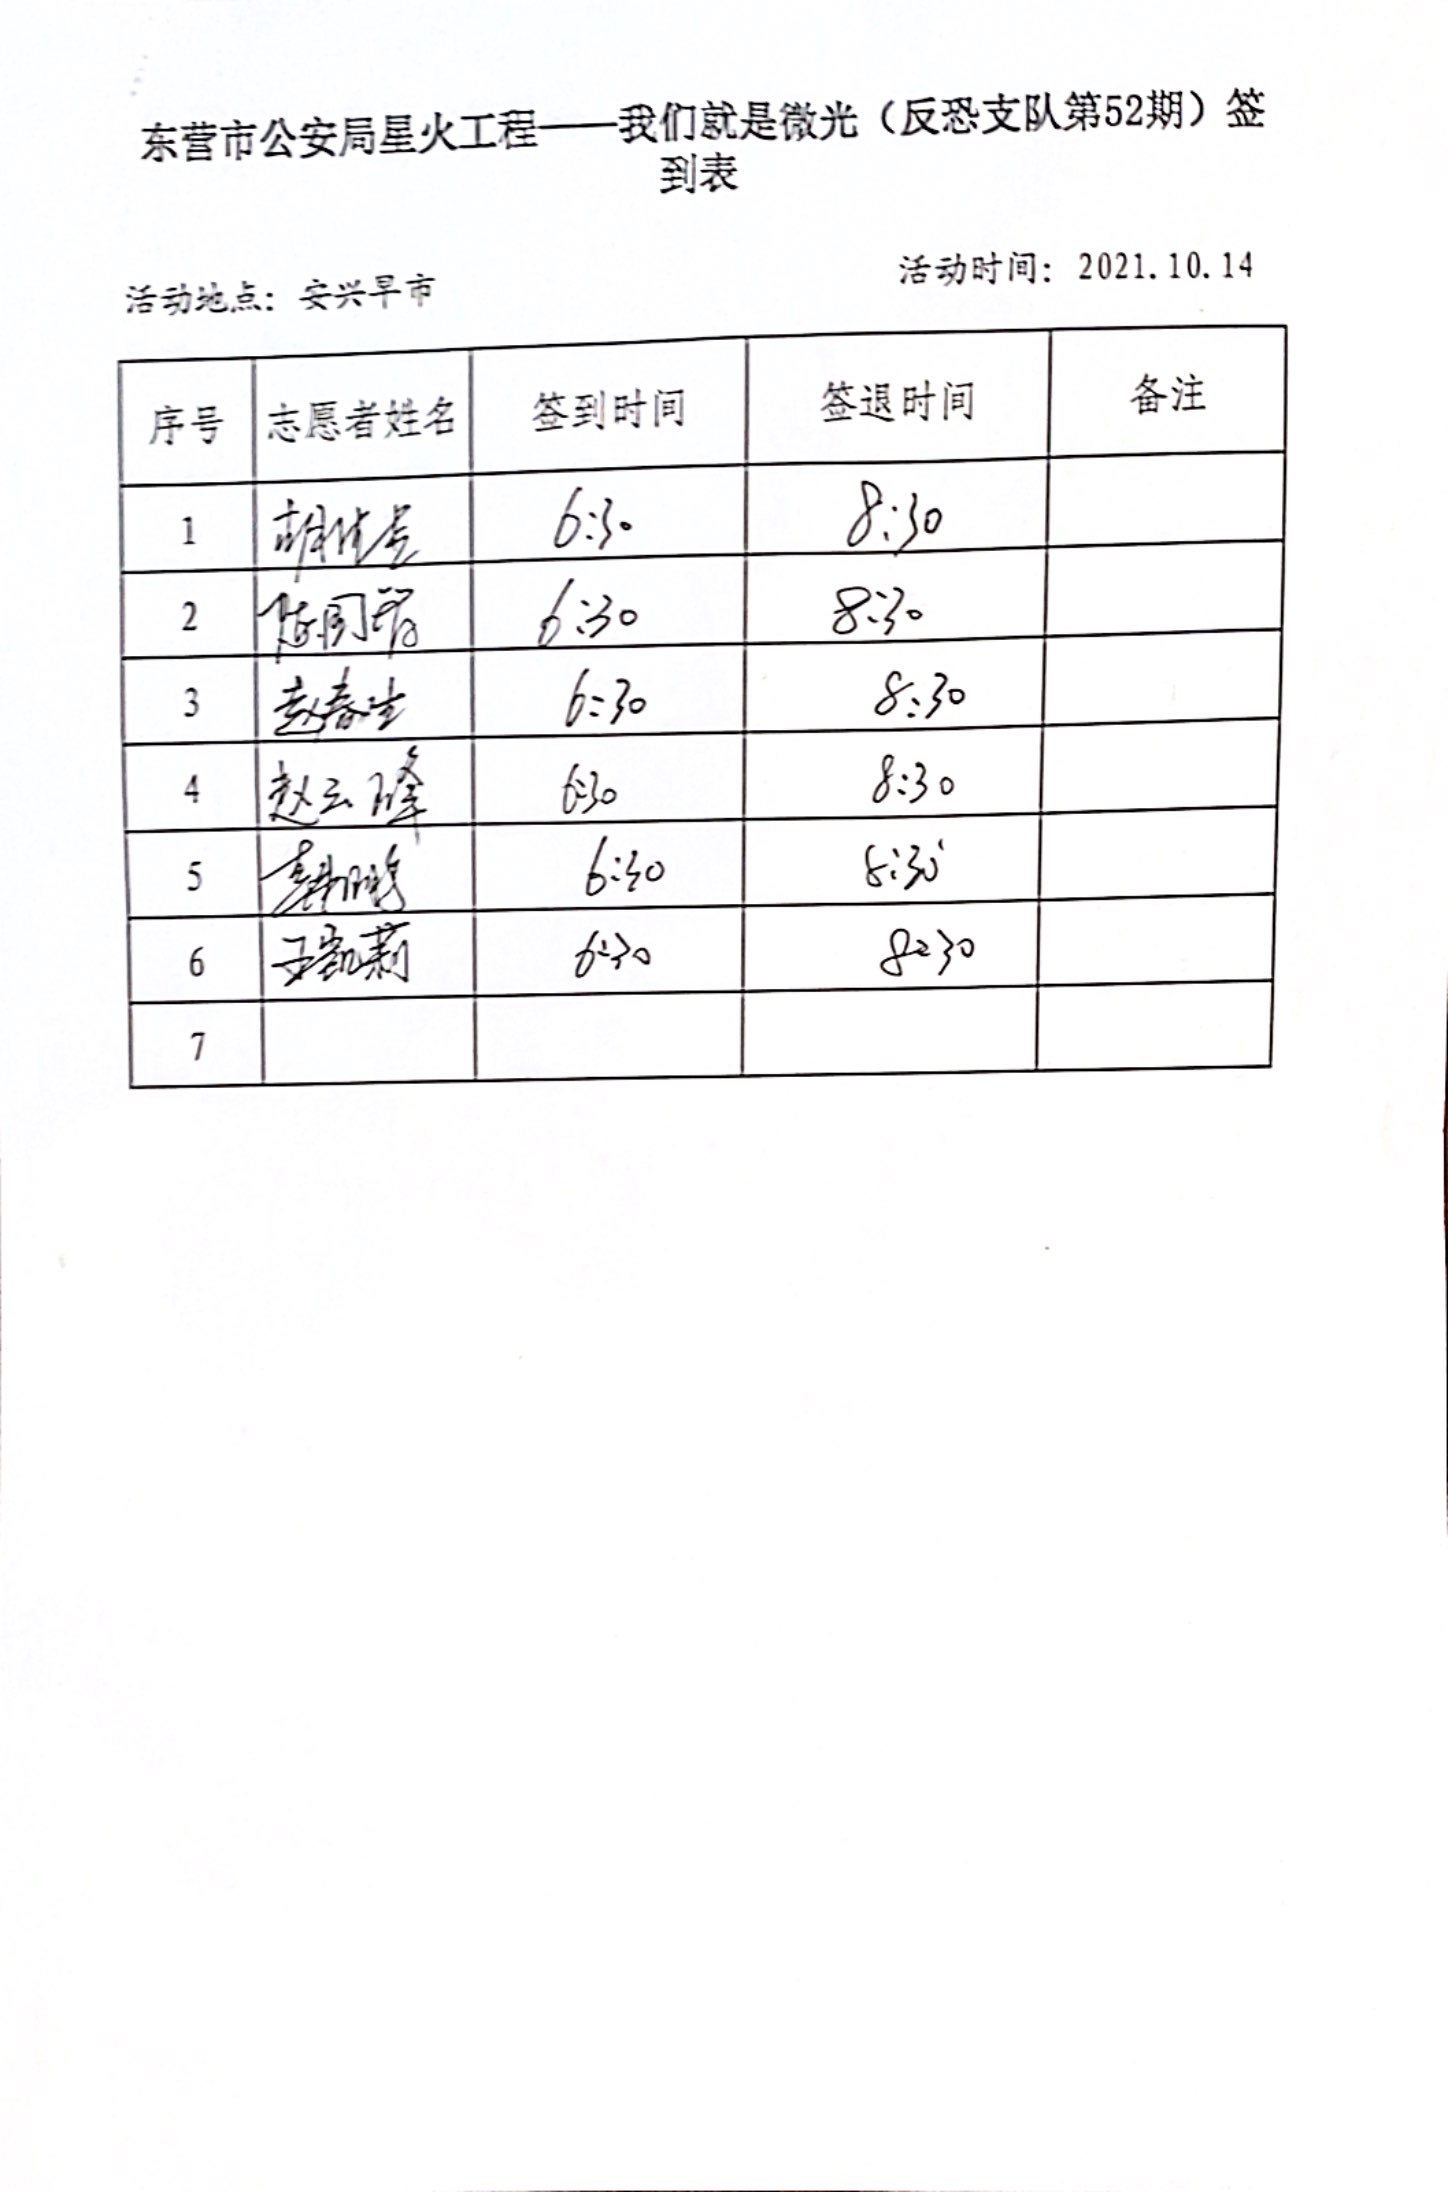 东营市公安局星火工程——我们就是微光（反恐支队第52期）签
到表
活动时间：2021.10.14
活动地点：安兴早市
序号 志愿者姓名 签到时间 签退时间 备注
1 6:30 8:30
2 6:30 8:30
3 赵春生 6:30 8:30
4 赵云峰 6:30 8:30
5 6:30 8:30
6 王凯莉 6:30 8:30
7